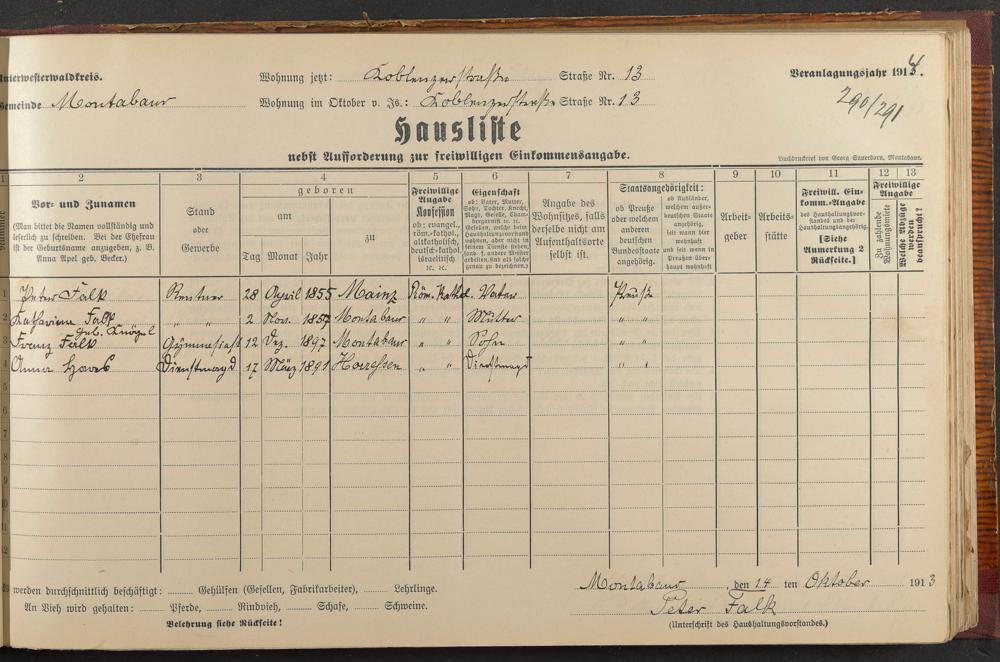 Unterwesterwaldkreis. Wohnung jetzt: Koblenzerstraße Straße Nr. 13 Veranlagungsjahr 1914.
Gemeinde Montabaur Wohnung im Oktober v. Js.: Koblenzerstraße Straße Nr. 13 290/291
Hausliste
nebst Aufforderung zur freiwilligen Einkommensangabe.
Buchdruckerei von Georg Sauerborn, Montabaur.
1 2 3 4 5 6 7 8 9 10 11 12 13
Nummer
Vor- und Zunamen
(Man bittet die Namen vollständig und
leserlich zu schreiben. Bei der Ehefrau
ist der Geburtsname anzugeben, z. B.
Anna Apel geb. Becker.)
Stand
oder
Gewerbe
geboren
am
Tag Monat Jahr
zu
Freiwillige
Angabe
Konfession
ob: evangel.,
röm.-kathol.,
altkatholisch,
deutsch-kathol.
israelitisch
ec. ec.
Eigenschaft
ob: Vater, Mutter,
Sohn, Tochter, Knecht,
Magd, Geselle, Cham-
bregarnist ec. ec.
Gesellen, welche beim
Haushaltungsvorstand
wohnen, aber nicht in
seinem Dienste stehen,
sond. f. andere Meister
arbeiten, sind als solche
genau zu bezeichnen.)
Angabe des
Wohnsitzes, falls
derselbe nicht am
Aufenthaltsorte
selbst ist.
Staatsangehörigkeit:
ob Preuße
oder welchem
anderen
deutschen
Bundesstaate
angehörig.
ob Ausländer,
welchem außer-
deutschen Staate
angehörig,
seit wann hier
wohnhaft
und seit wann in
Preußen über-
haupt wohnhaft
Arbeit-
geber
Arbeits-
stätte
Freiwill. Ein-
komm.-Angabe
des Haushaltungsvor-
standes und der
Haushaltungsangehörig.
[Siehe
Anmerkung 2
Rückseite.]
Freiwillige
Angabe
Zu zahlende
Wohnungsmiete
Welche Abzüge
werden
beansprucht?
1 Peter Falk Rentner 28 April 1855 Mainz Röm. Kathol. Vater Preuße
2 Katharina Falk " " 2 Nov. 1857 Montabaur " " Mutter " "
geb. Knögel
3 Franz Falk Gymnasiast 12 Dez. 1897 Montabaur " " Sohn " "
4 Anna Dienstmagd 17 März 1891 Horressen " " Dienstmagd " "
5
6
7
8
9
10
11
12
Es werden durchschnittlich beschäftigt: Gehülfen (Gesellen, Fabrikarbeiter), Lehrlinge.
An Vieh wird gehalten: Pferde, Rindvieh, Schafe, Schweine.
Belehrung siehe Rückseite!
Montabaur, den 14 ten Oktober 1913
Peter Falk
(Unterschrift des Haushaltungsvorstandes.)